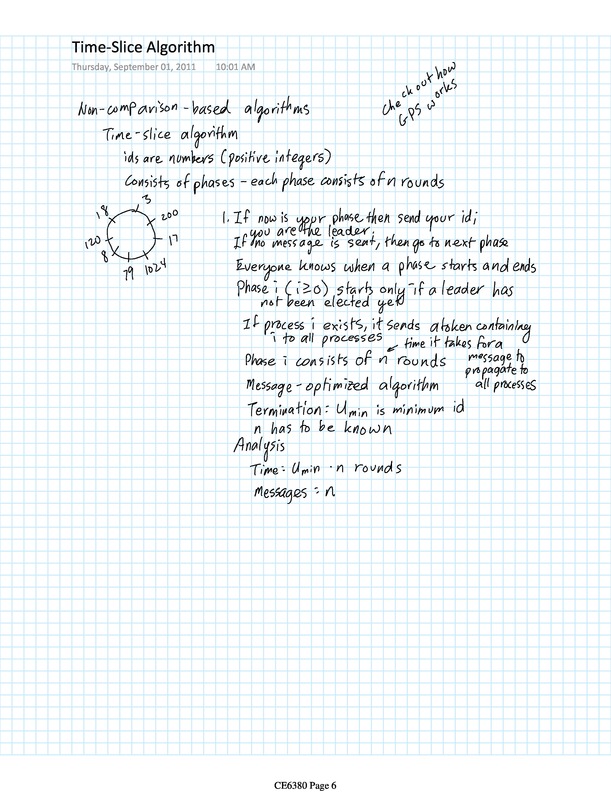 Time-Slice Algorithm
Thursday, September 01, 2011 10:01 AM
check out how
GPS works
Non-comparison-based algorithms
Time-slice algorithm
ids are numbers (positive integers)
Consists of phases - each phase consists of n rounds
3
200
17
1024
79
8
120
18
1. If now is your phase then send your id;
you are the leader;
If no message is sent, then go to next phase
Everyone knows when a phase starts and ends
Phase i (i≥0) starts only if a leader has
not been elected yet
If process i exists, it sends a token containing
i to all processes
Phase i consists of n rounds
time it takes for a
message to
propagate to
all processes
Message-optimized algorithm
Termination: Umin is minimum id
n has to be known
Analysis
Time: Umin · n rounds
Messages: n
CE6380 Page 6